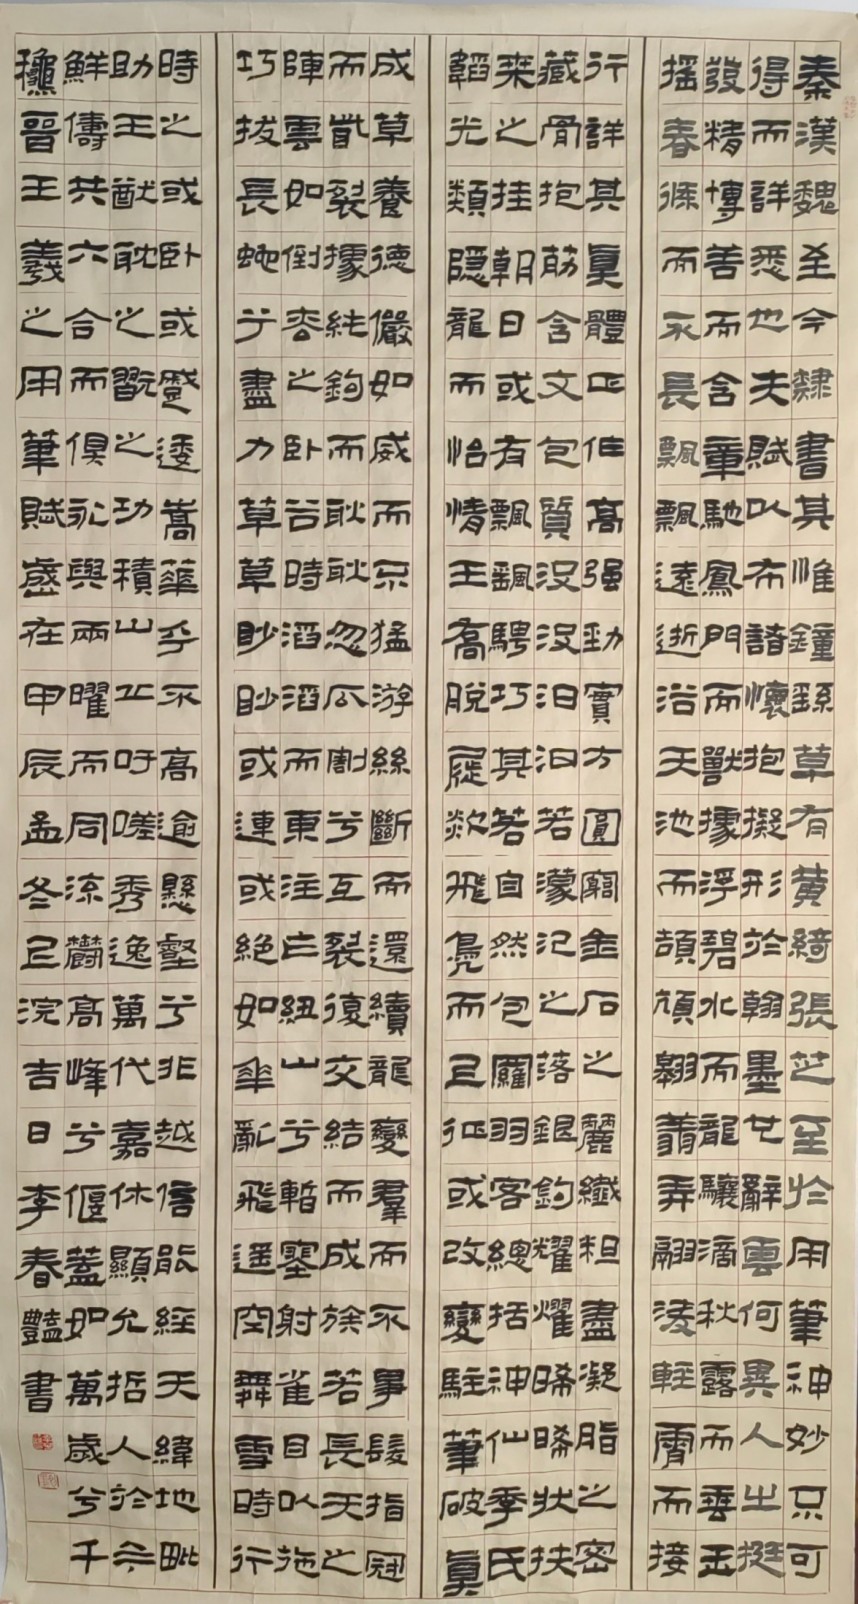 秦漢魏至今隸書其惟鐘繇草有黃綺張芝至於用筆神妙不可
得而詳悉也夫賦以布諸懷抱擬形於翰墨也辭雲何異人之挺
發精博善而含章馳鳳門而獸據浮碧水而龍驤滴秋露而垂玉
搖春條而不長飄飄遠逝浴天池而頡頏翱翥弄翮淩輕霄而接
行詳其真體正作高強勁實方圓窮金石之麗纖粗盡凝脂之密
藏骨抱筋含文包質沒沒汩汩若濛汜之落銀鉤耀耀晞晞狀扶
桑之挂朝日或有飄颻騁巧其若自然包羅羽客總括神仙季氏
韜光類隱龍而怡情王喬脫屣欻飛鳧而上征或改變駐筆破真
成草養德儼如威而不猛游絲斷而還續龍變羣而不爭髮指冠
而眥裂據純鉤而耿耿忽瓜割兮互裂復交結而成族若長天之
陣雲如倒松之臥谷時滔滔而東注乍紐山兮暫塞射雀目以施
巧拔長蛇兮盡力草草眇眇或連或絕如華亂飛遙空舞雪時行
時之或臥或蹙逶嵩華乎不高逾懸壑兮非越信能經天緯地毗
助王猷耽之翫之功積山丘吁嗟秀逸萬代嘉休顯允哲人於今
鮮儔共六合而俱永與兩曜而同流鬱高峰兮偃蓋如萬歲兮千
穐晉王羲之用筆賦歲在甲辰孟冬上浣吉日李春豔書